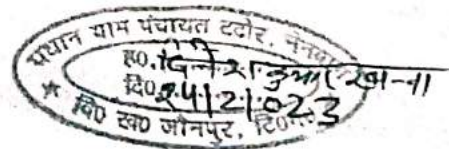 प्रधान ग्राम पंचायत टटोर, नैनबाग
ह०. दिनेश कुमार खन्ना
दि० 24/2/023
★ वि० ख० जौनपुर, टि०ग०